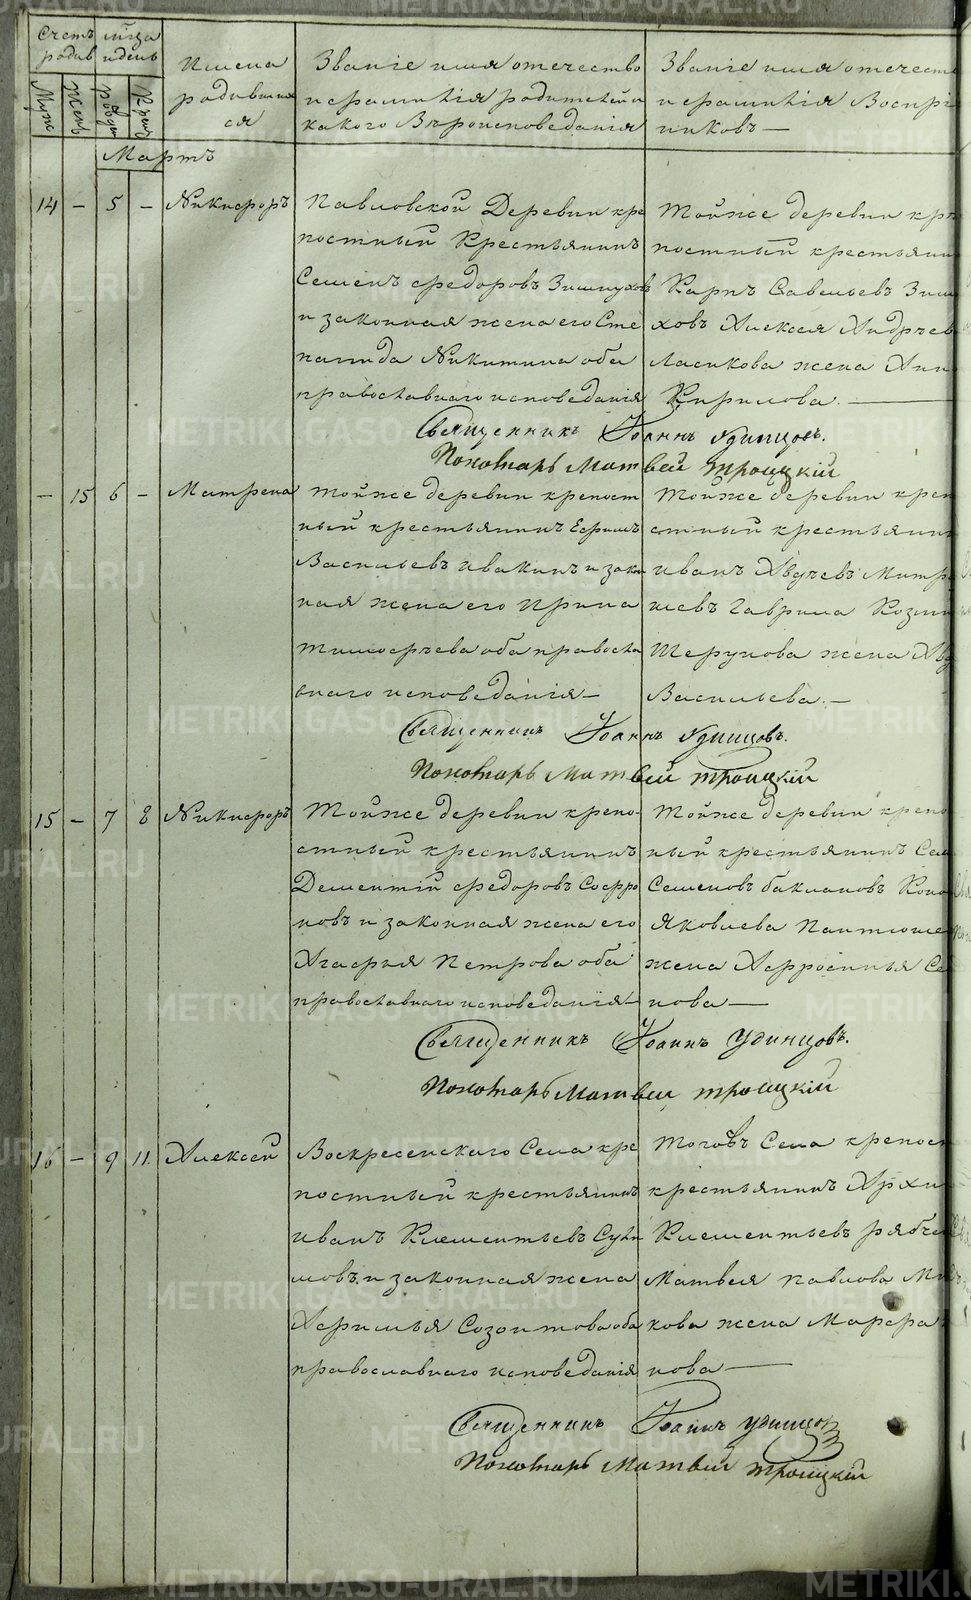 Счетъ родив
м҃ца и день
Имена родившихся
Званіе имя отечество и фамилія родителей и какого вѣроисповеданія
Званіе имя отечест и фамилія Воспрі никовъ —
Муж
Жен
рожд
Кре
Мартъ
14 — 5 — Никифоръ
Павловской Деревни кре
постный Крестьянинъ
Семенъ федоровъ
и законная жена его Сте
панида Никитина оба
православнаго исповеданія
Тойже деревни кре
постный крестьянин
Карпъ Савельевъ Зим
ховъ Алексея Андрѣев
Ласикова жена Анн
Кирилова. —
Священникъ Иоаннъ Удинцовъ.
Пономарь Матвей Троицкій
— 15 6 — Матрена
Тойже деревни крепост
ный крестьянинъ Ефимъ
Васильевъ Ивакинъ и закон
ная жена его Ирина
Тимофѣева оба правосла
внаго исповеданія —
Тойже деревни креп
стный крестьянин
Иванъ Авдѣевъ Митр
шевъ Гаврила Козми
Шерунова жена Авд
Васильева. —
Священникъ Иоаннъ Удинцовъ.
Пономарь Матвей Троицкій
15 — 7 8 Никифоръ
Тойже деревни крепо-
стный крестьянинъ
Дементій федоровъ Софро
новъ и законная жена его
Агафья Петрова оба
православнаго исповеданія —
Тойже деревни крепо
ный крестьянинъ Сем
Семеновъ баклановъ Коно
Яковлева Пантюше
жена Афросинья Се
нова —
Священникъ Иоаннъ Удинцовъ.
Пономарь Матвей Троицкій
16 — 9 11 Алексей
Воскресенскаго Села кре
постный крестьянинъ
Иванъ Клементьевъ
мовъ и законная жена
Афимья Созонтова оба
православнаго исповеданія
Тоговъ Села крепост
крестьянинъ Архи
Клементьевъ рябче
Матвея Павлова Ми
кова жена Марфа
нова —
Священникъ Иоаннъ Удинцов
Пономарь Матвей Троицкій
METRIKI.GASO-URAL.RU